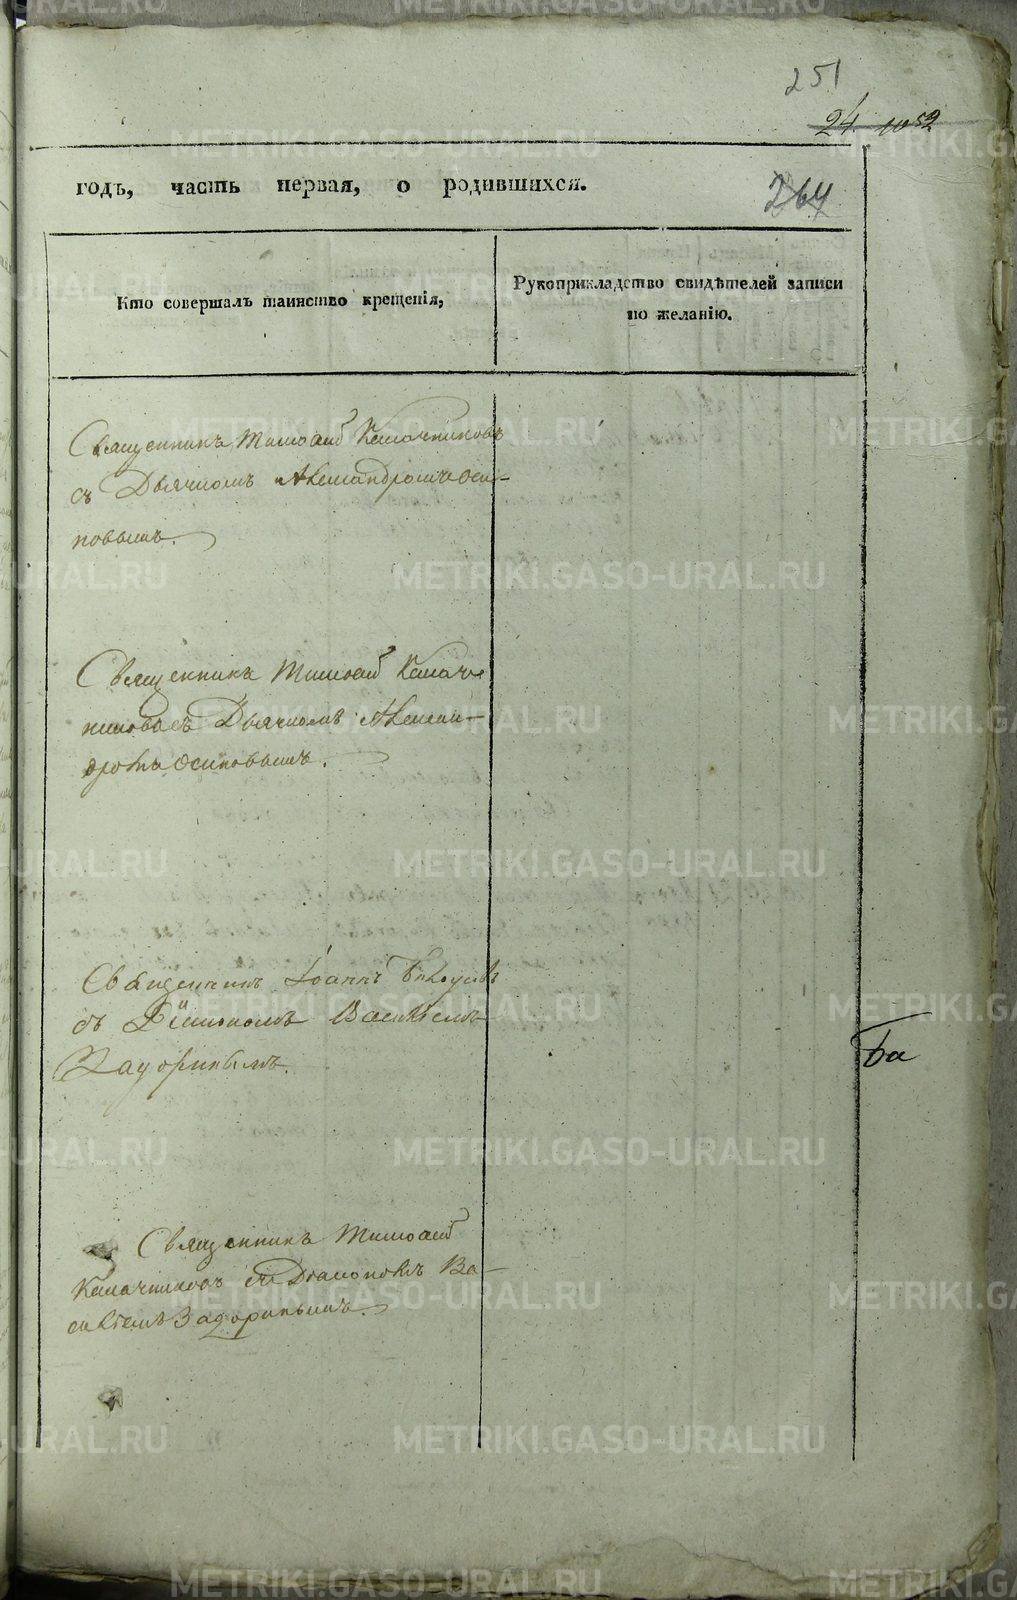 251
24 1052
годъ, часть первая, о родившихся.
264
Кто совершалъ таинство крещенія,
Рукоприкладство свидѣтелей записи
по желанію.
Священникъ Тимоѳей Калачниковъ
съ Дьячкомъ Александромъ Оси-
повымъ.
Священникъ Тимоѳей Калач-
никовъ съ Дьячкомъ Алексан-
дромъ Осиповымъ.
Священникъ Іоаннъ
съ Діакономъ Василіемъ
Задоринымъ.
Ба
Священникъ Тимоѳей
Калачниковъ съ Діакономъ Ва-
силіемъ Задоринымъ.
METRIKI.GASO-URAL.RU